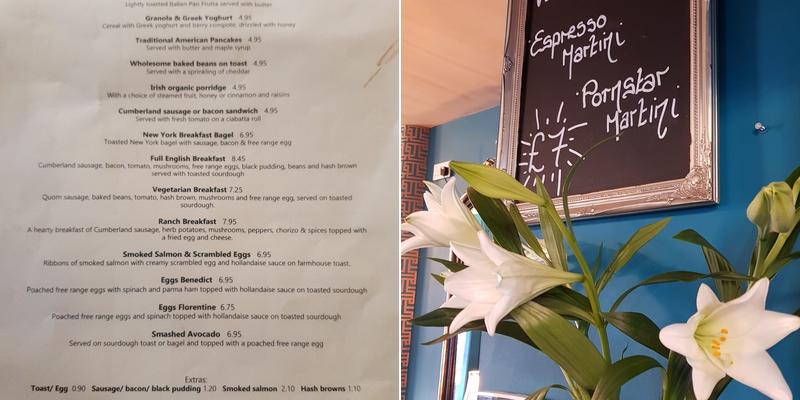 Lightly toasted Italian Pan Frutta served with butter
Granola & Greek Yoghurt 4.95
Cereal with Greek yoghurt and berry compote, drizzled with honey
Traditional American Pancakes 4.95
Served with butter and maple syrup
Wholesome baked beans on toast 4.95
Served with a sprinkling of cheddar
Irish organic porridge 4.95
With a choice of steamed fruit, honey or cinnamon and raisins
Cumberland sausage or bacon sandwich 4.95
Served with fresh tomato on a ciabatta roll
New York Breakfast Bagel 6.95
Toasted New York bagel with sausage, bacon & free range egg
Full English Breakfast 8.45
Cumberland sausage, bacon, tomato, mushrooms, free range eggs, black pudding, beans and hash brown
served with toasted sourdough
Vegetarian Breakfast 7.25
Quorn sausage, baked beans, tomato, hash brown, mushrooms and free range egg, served on toasted
sourdough.
Ranch Breakfast 7.95
A hearty breakfast of Cumberland sausage, herb potatoes, mushrooms, peppers, chorizo & spices topped with
a fried egg and cheese.
Smoked Salmon & Scrambled Eggs 6.95
Ribbons of smoked salmon with creamy scrambled egg and hollandaise sauce on farmhouse toast.
Eggs Benedict 6.95
Poached free range eggs with spinach and parma ham topped with hollandaise sauce on toasted sourdough
Eggs Florentine 6.75
Poached free range eggs and spinach topped with hollandaise sauce on toasted sourdough
Smashed Avocado 6.95
Served on sourdough toast or bagel and topped with a poached free range egg
Extras:
Toast/ Egg 0.90 Sausage/ bacon/ black pudding 1.20 Smoked salmon 2.10 Hash browns 1.10
Espresso
Martini
Pornstar
Martini
£7